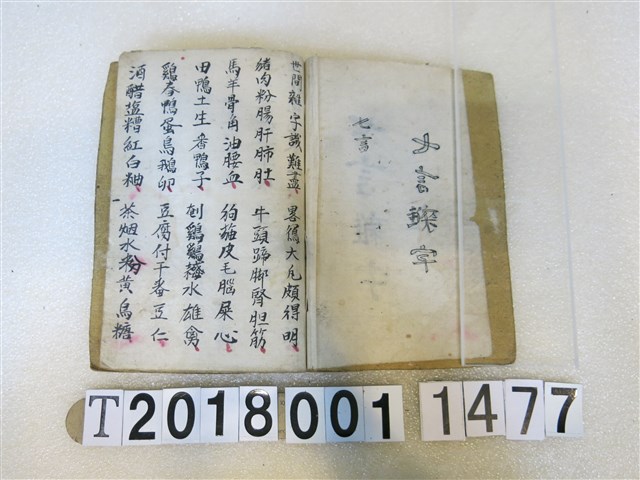 七言雜字
七言
世間雜字識難盡 畧寫大凢頗得明
猪肉粉腸肝肺肚 牛頭蹄脚腎胆筋
馬羊骨角油腰血 狗茄皮毛腦屎心
田鴨土生番鴨子 刣鷄鷄水雄禽
鷄春鴨蛋烏鵝卵 豆腐付干番豆仁
酒醋塩糟紅白粬 茶烟水粉黄烏糖
T2018001 1477